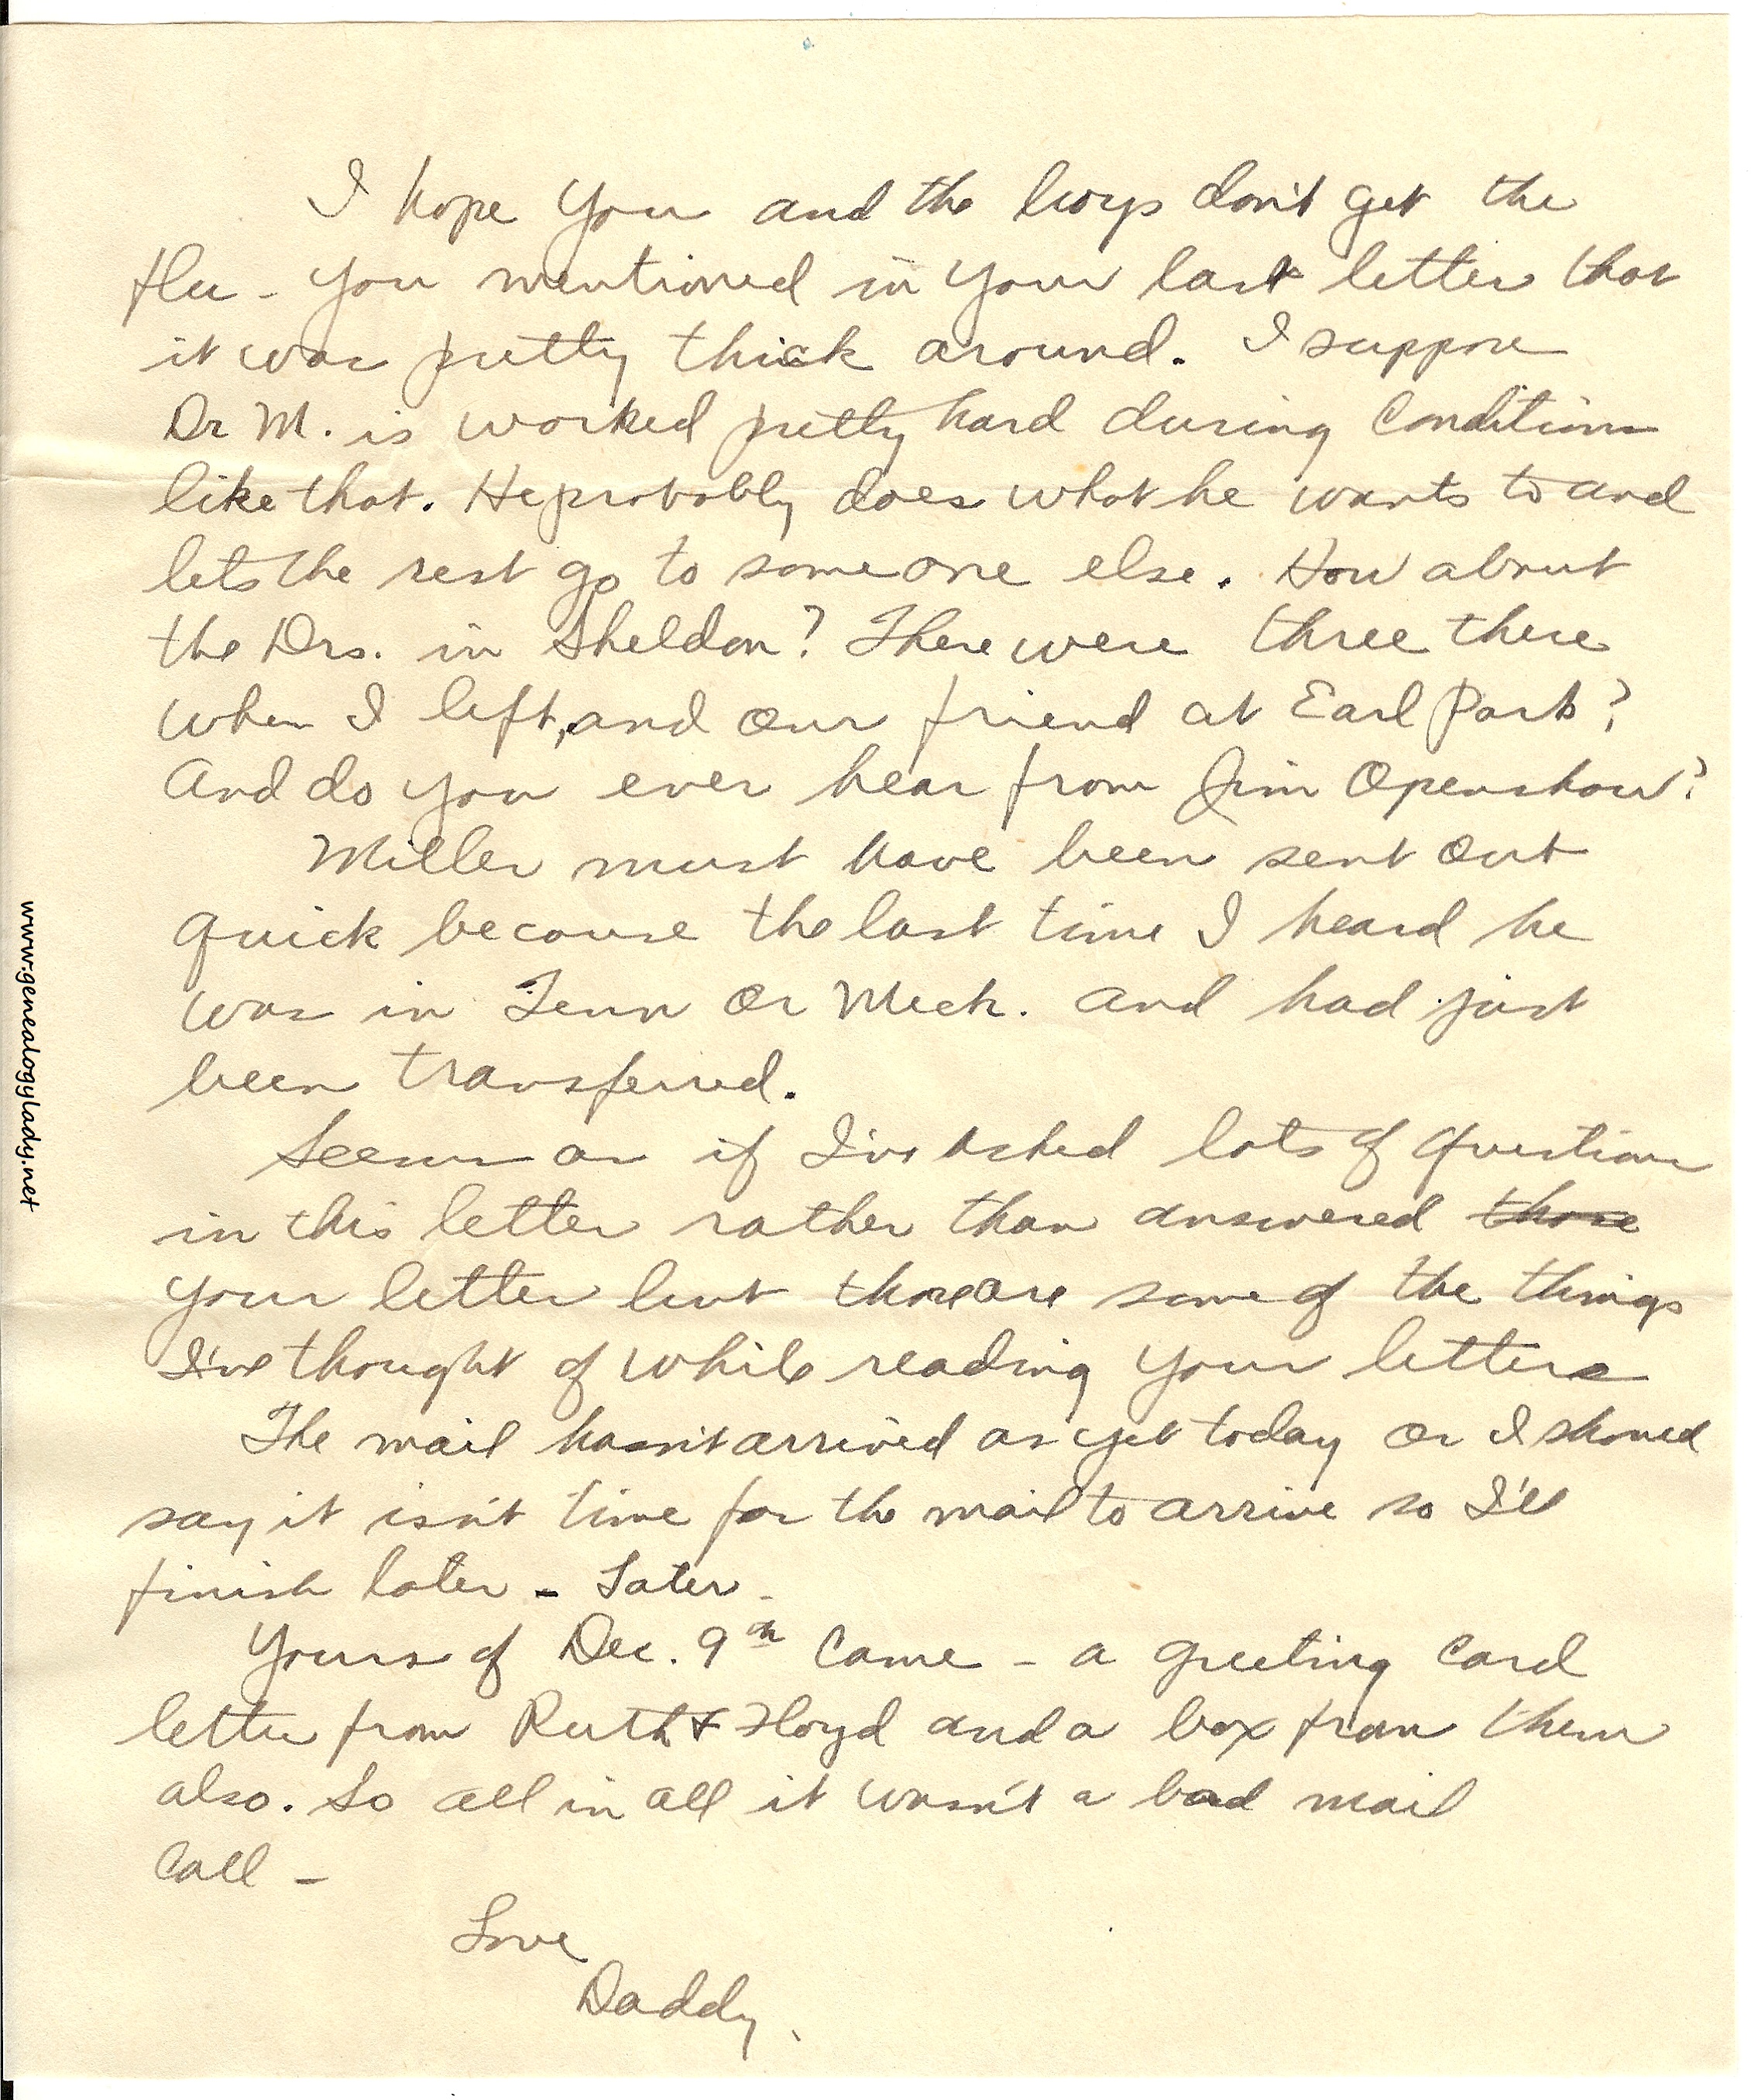 I hope you and the boys don't get the
flu - you mentioned in your last letter that
it was pretty thick around. I suppose
Dr M. is worked pretty hard during conditions
like that. He probably does what he wants to and
lets the rest go to someone else. How about
the Drs. in Sheldon? There were three there
when I left, and our friend at Earl Park?
And do you ever hear from Jim Openshaw?
Miller must have been sent out
quick because the last time I heard he
was in Tenn or Mich. and had just
been transferred.
Seems as if I've asked lots of questions
in this letter rather than answered those
your letter but those are some of the things
I've thought of while reading your letters
The mail hasn't arrived as yet today or I should
say it isn't time for the mail to arrive so I'll
finish later - Later -
Yours of Dec. 9th came - a greeting card
letter from Ruth & Floyd and a box from them
also. So all in all it wasn't a bad mail
call -
Love
Daddy.
www.genealogylady.net